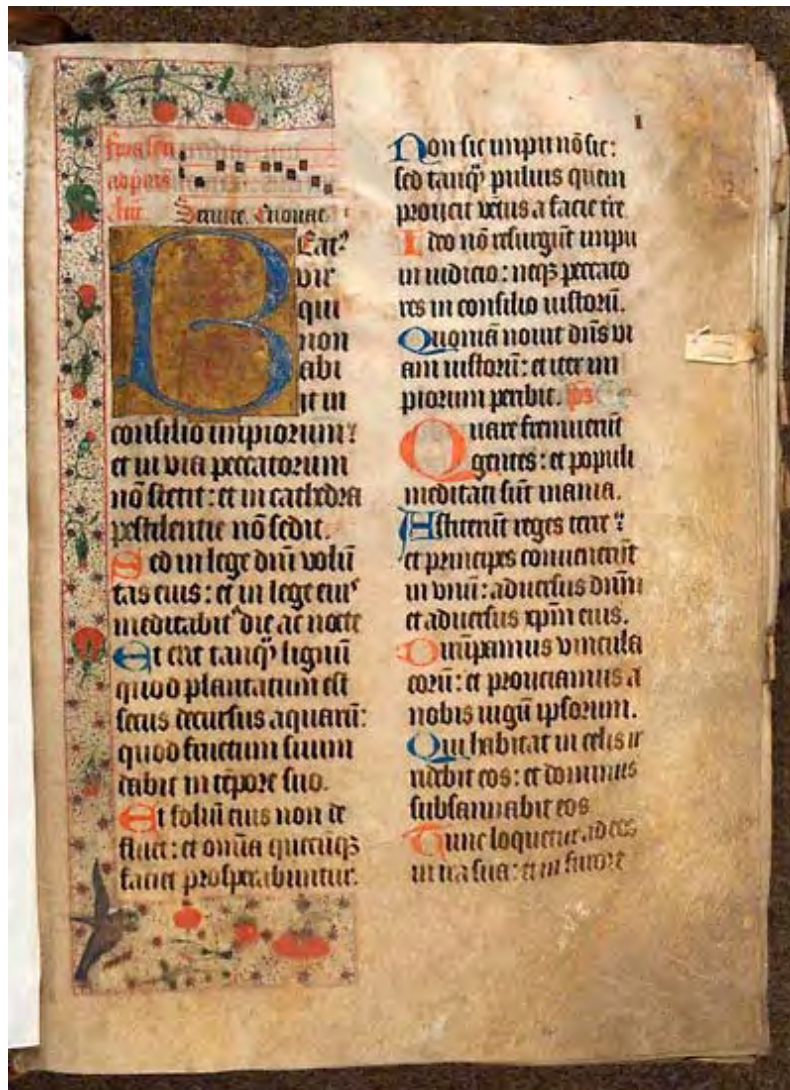 i
Seruite. Euouae
Beat⁹
vir
qui
non
abi
it in
consilio impiorum:
et in via peccatorum
nō stetit: et in cathedra
pestilentie nō sedit.
Sed in lege dnī volū
tas eius: et in lege eiu⁹
meditabit᷑ die ac nocte
Et erit tanq̄ lignū
quod plantatum est
secus decursus aquarū:
quod fructum suum
dabit in tēpore suo.
Et foliū eius non de
fluet: et omīa quecūqꝫ
faciet prosperabuntur.
Non sic impii nō sic:
sed tanq̄ puluis quem
proicit ventus a facie tr̄e
Ideo nō resurgūt impii
in iudicio: neqꝫ peccato
res in consilio iustorū.
Quoniā nouit dn̄s vi
am iustorū: et iter im
piorum peribit. ps
Quare fremuerūt
gentes: et populi
meditati sūt inania.
Astiterūt reges terre:
et principes conuenerūt
in vnū: aduersus dnm̄
et aduersus xp̄m eius.
Dirūpamus vincula
eorū: et proiciamus a
nobis iugū ipsorum.
Qui habitat in celis ir
ridebit eos: et dominus
subsannabit eos
Tunc loquetur ad eos
in ira sua: et in furore